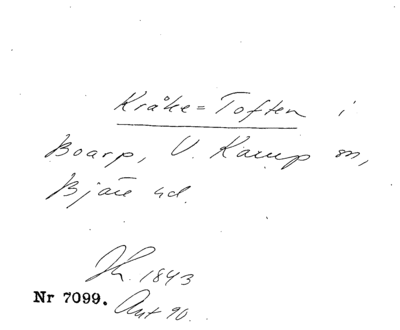 Kråke=Toften i
Boarp, V. Karup sn,
Bjäre hd.
Jh. 1843
Nr 7099. Ant 90.